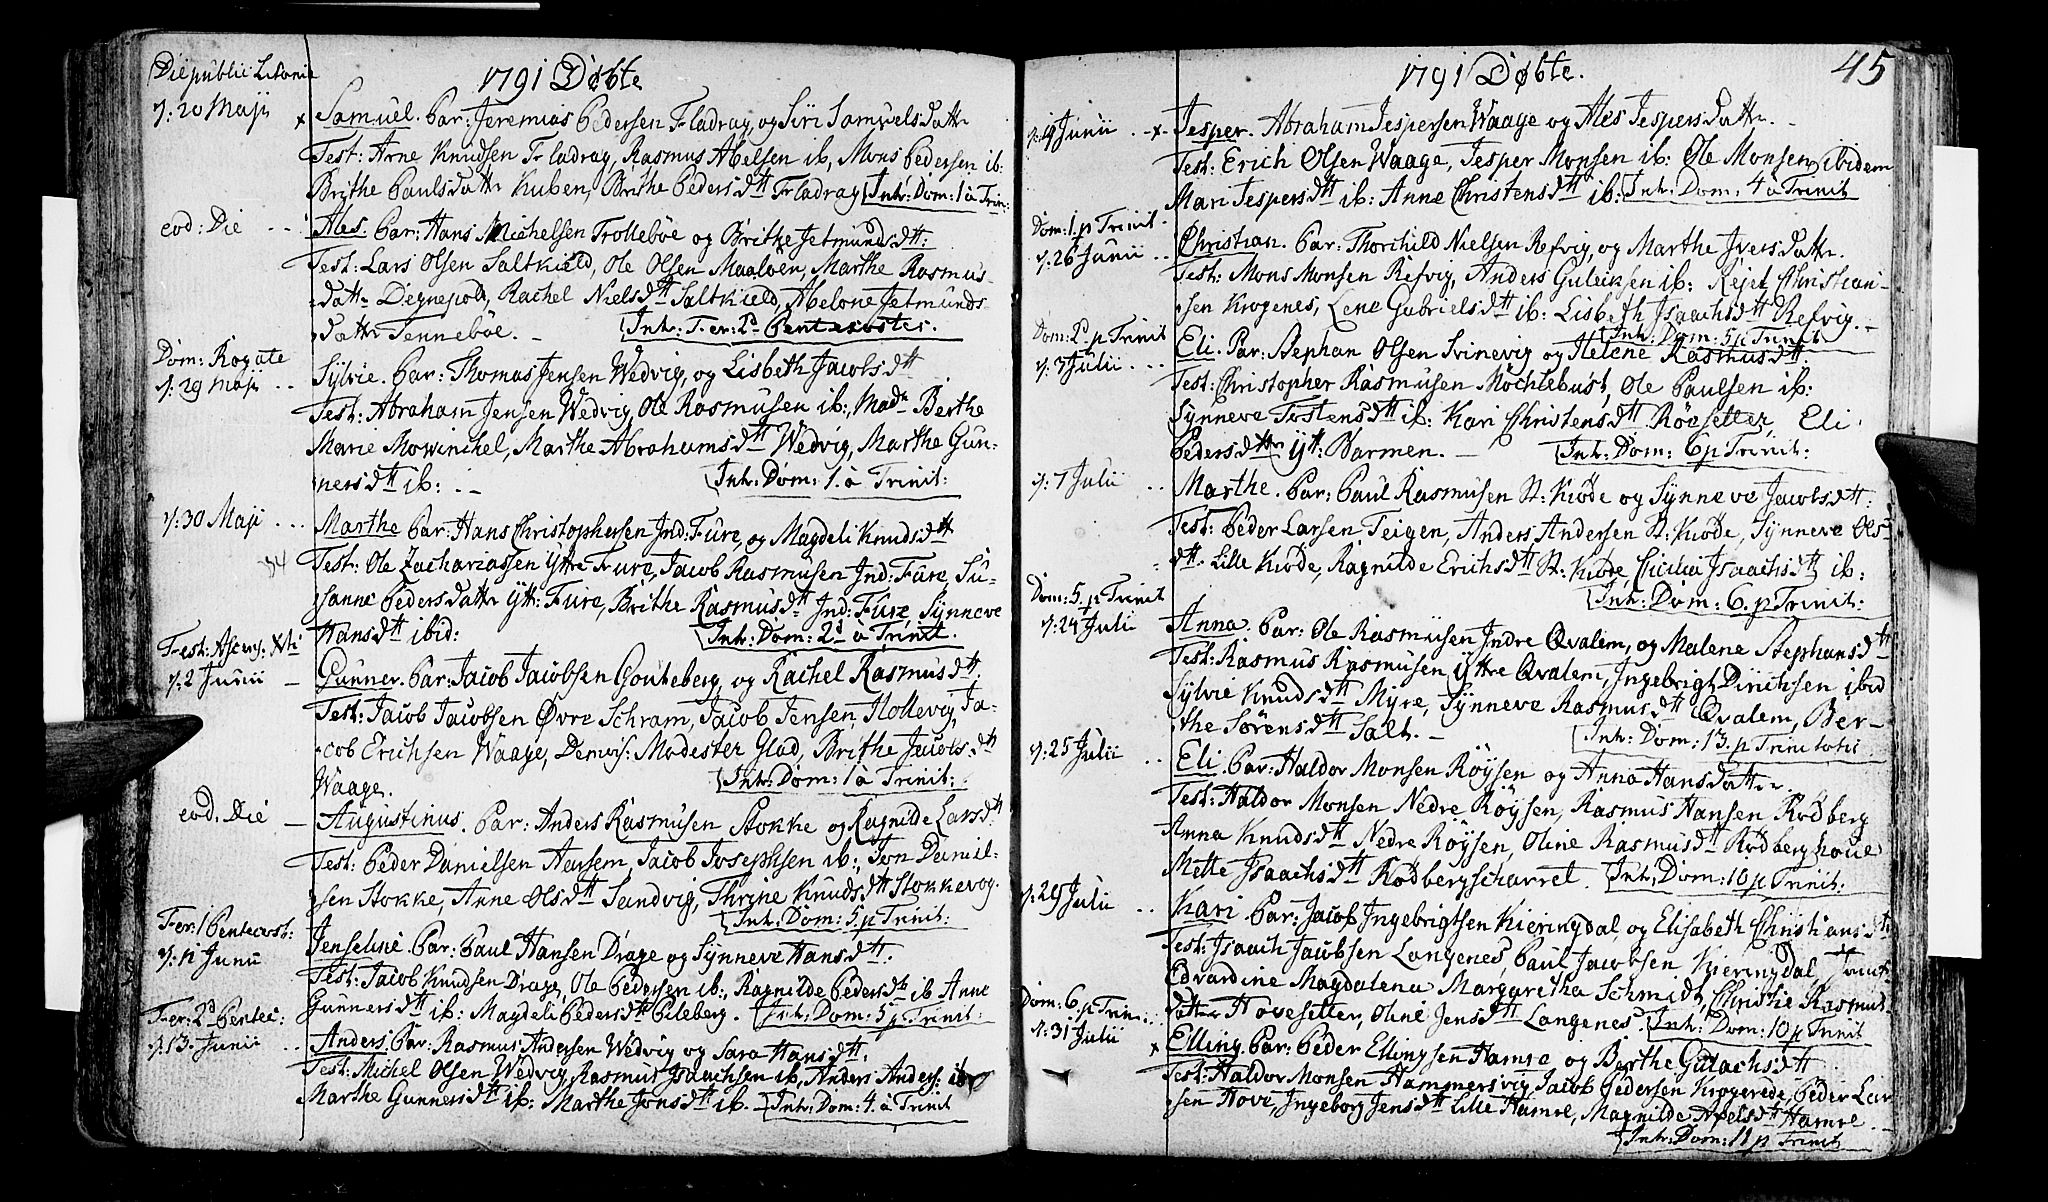 1791 Døbte
Die public Litaniæ
d: 20 Maji × Samuel. Par: Jeremias Pedersen Fladrag, og Siri Samuels Dattr
Test: Arne Knudsen Fladrag, Rasmus Abelsen ib, Mons Pedersen ib:
Brithe Pauls Dattr Kuben, Brithe Pedersdtt Fladrag Intr: Dom: 1 à Trin:
eod: Die Ales. Par: Hans Michelsen Trolleböe og Brithe Jetmundsdtt:
Test: Lars Olsen Saltkield, Ole Olsen Maalöen, Marthe Rasmus-
dattr Degnepoll, Rachel Nielsdtt Saltkield, Abelone Jetmunds-
dattr Tenneböe. Intr: Fer: 2d Pentecostes.
Dom: Rogate
d: 29 Maji Sylvie. Par: Thomas Jensen Wedvig, og Lisbeth Jacobsdtt
Test: Abraham Jensen Wedvig, Ole Rasmusen ib:, Madr Berthe
Marie Mowinchel, Marthe Abrahamsdtt Wedvig, Marthe Gun-
nersdtt ib: Intr: Dom: 1 à Trinit:
d: 30 Maji Marthe Par: Hans Christophersen Ind: Fure, og Magdeli Knudsdtt
Test: Ole Zachariassen Yttre Fure, Jacob Rasmusen Ind: Fure, Su-
sanne Peders Dattr Ytt: Fure, Brithe Rasmusdtt Ind: Fure, Synneve
Hansdtt ibid: Intr: Dom: 2d à Trinit.
Fest: Ascens: Xti
d: 2 Junii Gunner. Par: Jacob Jacobsen Gouteberg og Rachel Rasmusdtt:
Test: Jacob Jacobsen Øvre Schram, Jacob Jensen Hollevig, Ja-
cob Erichsen Waage, Demois: Modester Glad, Brithe Jacobsdtt
Waage. Intr: Dom: 1 à Trinit:
eod. Die Augustinus. Par: Anders Rasmusen Stokke og Ragnilde Larsdtt
Test: Peder Danielsen Aarsem, Jacob Josephsen ib:, Jon Daniel-
sen Stokke, Anne Olsdtt Sandvig, Thrine Knudsdtt Stokkevog.
Intr: Dom: 5 p Trinit:
Fer: 1 Pentecost:
d: 12 Junii Jenseline Par: Paul Hansen Drage og Synneve Hansdtt.
Test: Jacob Knudsen Drage, Ole Pedersen ib:, Ragnilde Pedersdtt ib Anne
Gunnersdtt ib: Magdeli Pedersdtt Pileberg. Intr: Dom: 5 p Trinit:
Fer: 2d Pentec:
d: 13 Junii Anders. Par: Rasmus Andersen Wedvig og Sara Hansdtt.
Test: Michel Olsen Wedvig, Rasmus Isaachsen ib, Anders Anders: ib
Marthe Gunnersdtt ib: Marthe Jonsdtt ib. Intr: Dom: 4. à Trinit
1791 Døbte. 45
d: 19 Junii × Jesper. Abraham Jespersen Waage og Ales Jespers Dattr.
Test: Erich Olsen Waage, Jesper Monsen ib: Ole Monsen ibidem
Mari Jespersdtt ib: Anne Christensdtt ib: Intr: Dom: 4 à Trinit
Dom: 1. p Trinit.
d: 26 Junii Christian. Par: Thorchild Nielsen Refvig, og Marthe Ivers Dattr.
Test: Mons Monsen Refvig, Anders Guleiksen ib: Rejer Christian-
sen Krogenes, Lene Gabrielsdtt ib: Lisbeth Isaachsdtt Refvig.
Intr: Dom: 5 p Trinit
Dom: 2d p Trinit
d. 3 Julii Eli. Par: Stephan Olsen Svinevig og Helene Rasmusdtt:
Test: Christopher Rasmusen Mochlebust, Ole Paulsen ib:
Synneve Testensdtt ib: Kari Christensdtt Rösetter, Eli
Pedersdattr Ytt: Barmen. Intr: Dom: 6 p Trinit:
d: 7 Julii Marthe. Par: Paul Rasmusen St: Kiöde og Synneve Jacobsdtt:
Test: Peder Larsen Teigen, Anders Andersen St: Kiöde, Synneve Ols-
dtt. Lille Kiöde, Ragnilde Erichsdtt St: Kiöde Cicilia Isaachsdtt ib:
Intr: Dom: 6. p Trinit:
Dom: 5. p Trinit
d: 24 Julii Anna. Par: Ole Rasmusen Indre Qvalem, og Malene Stephansdtt
Test: Rasmus Rasmusen Yttre Qvalem, Ingebrigt Dirichsen ibid
Sylvie Knudsdtt Myre, Synneve Rasmusdtt Qvalem, Ber-
the Sörensdtt Salt. Intr: Dom: 13. p Trinitatis
d: 25 Julii Eli Par: Haldor Monsen Röysen og Anna Hans Dattr.
Test: Haldor Monsen Nedre Röysen, Rasmus Hansen Rödberg
Anna Knudsdtt Nedre Röysen, Oline Rasmusdtt Rödberghoue
Mette Isaachsdtt Rödbergscharret. Intr: Dom: 10 p Trinit:
d: 29 Julii Kari Par: Jacob Ingebrigtsen Kieringdal, og Elisabeth Christiansdtt
Test: Isaach Jacobsen Langenes, Paul Jacobsen Kieringdal
Edvardine Magdalena Margaretha Schmidt, Christie Rasmus-
datter Hovesetter, Oline Jensdtt Langenes. Intr: Dom: 10 p Trinit
Dom: 6. p Trin:
d. 31 Julii × Elling. Par: Peder Ellingsen Hamre og Berthe Gulachsdtt
Test: Haldor Monsen Hammersvig Jacob Pedersen Krogerede, Peder Lar
sen Hove, Ingeborg Jensdtt Lille Hamre, Magnilde Apelsdtt Hamre.
Intr: Dom: 11 p Trinit